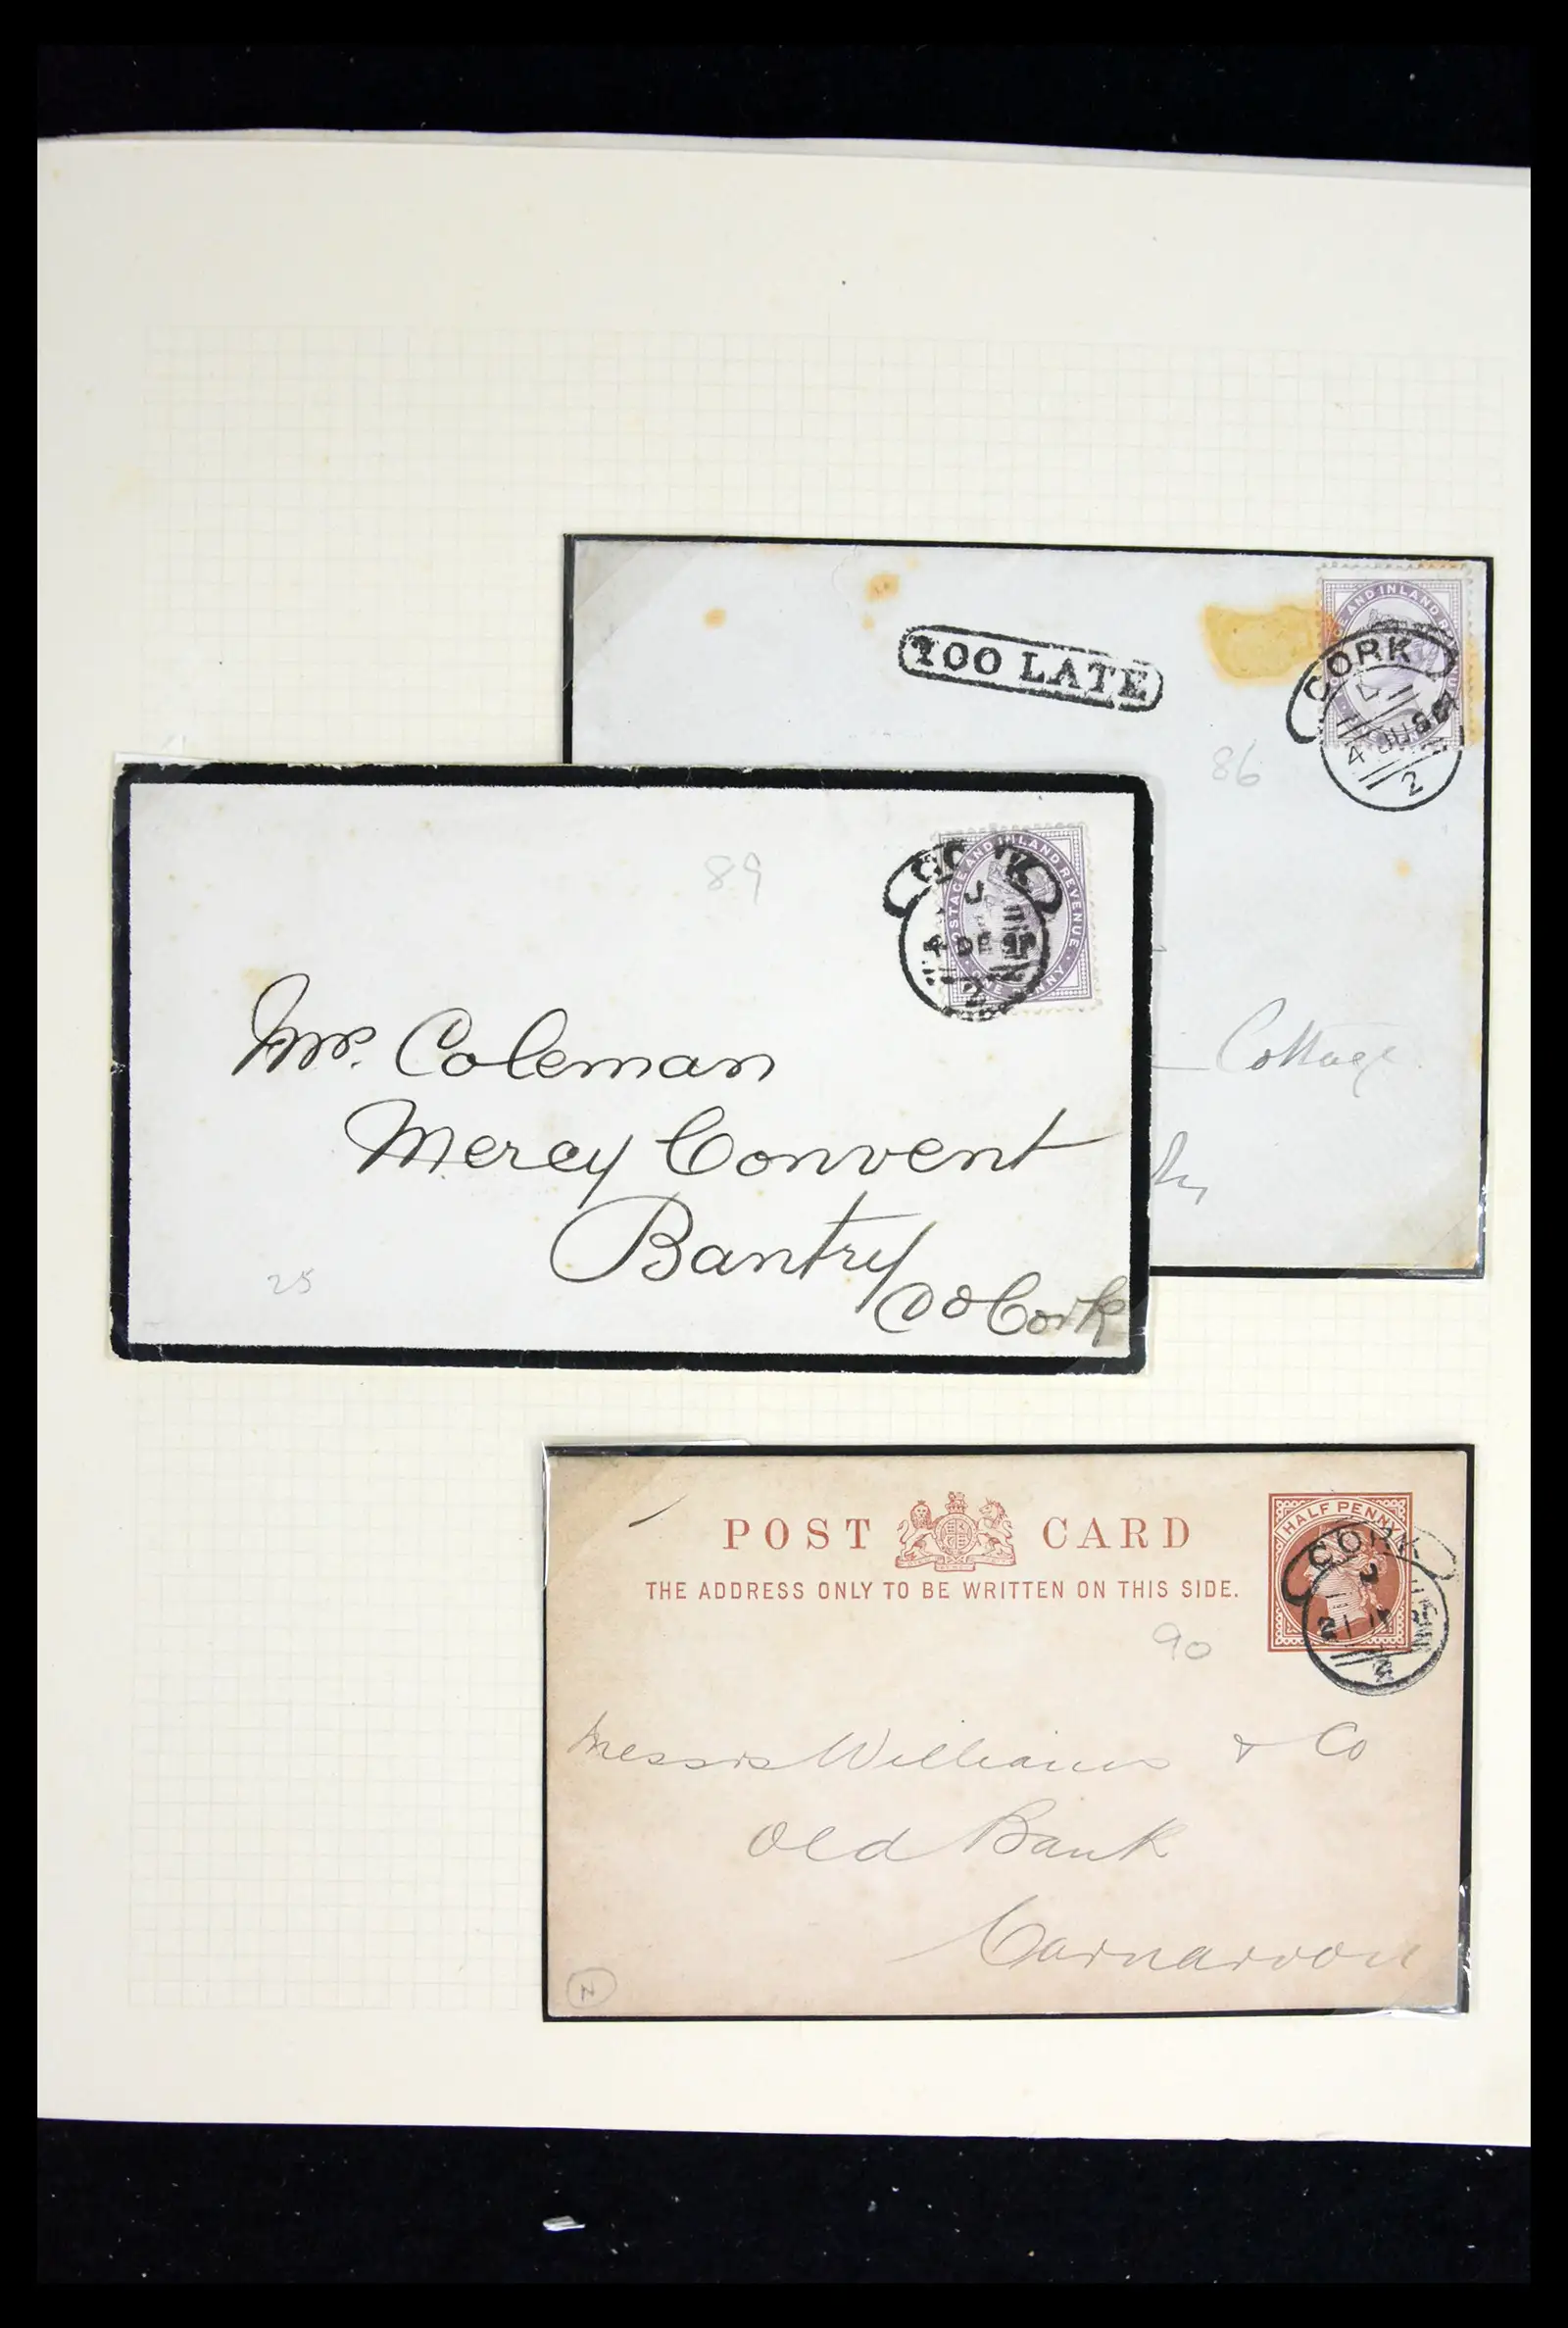 TOO LATE
POSTAGE AND INLAND REVENUE
CORK
4 JU 86
2
86
Cottage
89
POSTAGE AND INLAND REVENUE
ONE PENNY
CORK
J
4 DE
2
Mr. Coleman
Mercy Convent
Bantry
Co Cork
25
POST CARD
THE ADDRESS ONLY TO BE WRITTEN ON THIS SIDE.
HALF PENNY
CORK
21
2
90
Messrs Williams & Co
Old Bank
Carnarvon
N